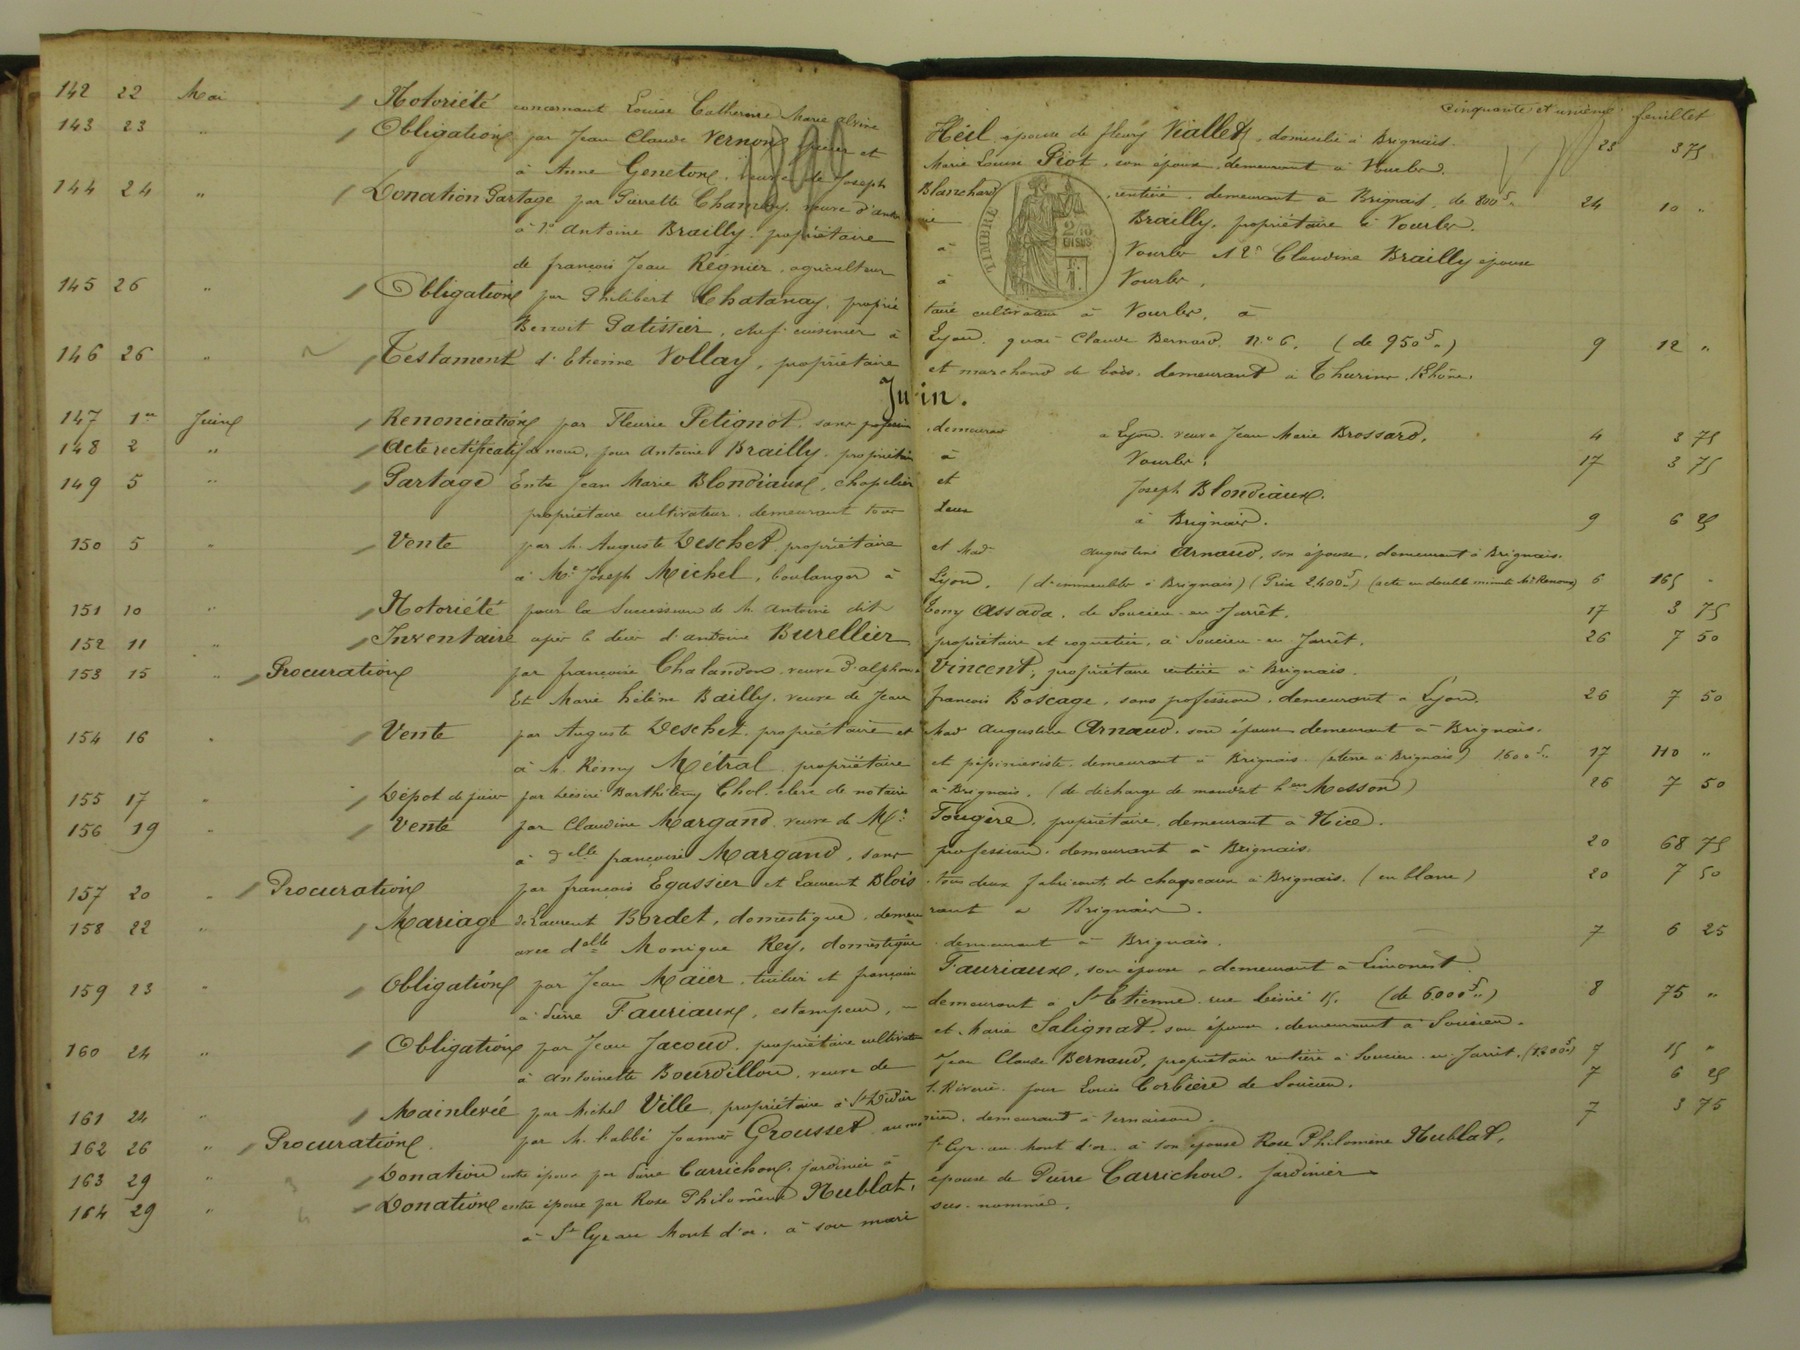 cinquante et unième feuillet
142 22 Mai Notoriété concernant Louise Catherine Marie Alvine Heil, épouse de fleury Viallet, domiciliée à Brignais. 23 3 75
143 23 " Obligation par Jean Claude Vernon, épicier et Marie Louise Piot, son épouse demeurant à Vourles.
à Anne Geneton, veuve de Joseph Blanchard, rentière, demeurant à Brignais, de 800f " 24 10 "
144 24 " Donation Partage par Pierrette veuve d'antoine Brailly, propriétaire à Vourles.
à 1° Antoine Brailly propriétaire à Vourles & 2° Claudine Brailly épouse
de françois Jean Régnier, agriculteur à Vourles.
145 26 " Obligation par Philibert Chatanay, propriétaire cultivateur à Vourles, à
Benoit Patissier, chef cuisinier à Lyon, quai Claude Bernard, n° 6. (de 950f ") 9 12 "
146 26 " Testament d'Etienne Vollay, propriétaire et marchand de bois, demeurant à Thurins, Rhône.
Juin.
147 1er Juin Renonciation par Fleurie Petignot, sans profession, demeurant à Lyon, veuve Jean Marie Brossard. 4 3 75
148 2 " Acte rectificatif de nom, pour Antoine Brailly, propriétaire à Vourles. 17 3 75
149 5 " Partage Entre Jean Marie Blondiaux, chapelier et Joseph Blondiaux.
propriétaire cultivateur, demeurant tous deux à Brignais. 9 6 25
150 5 " Vente par M. Auguste Deschet, propriétaire et Made Augustine Arnaud, son épouse, demeurant à Brignais.
à Mr Joseph Michel, boulanger à Lyon. (d'immeubles à Brignais) (Prix 2,400f ") (acte en double minute Me) 6 165 "
151 10 " Notoriété pour la Succession de M. Antoine dit Tony Assada, de Soucieu-en-Jarrêt. 17 3 75
152 11 " Inventaire après le décès d'antoine Burellier propriétaire et coquetier, à Soucieu-en-Jarrêt. 26 7 50
153 15 " Procuration par françoise Chalandon, veuve d'alphonse Vincent, propriétaire rentière à Brignais.
Et Marie hélène Bailly, veuve de Jean françois Boscage, sans profession, demeurant à Lyon. 26 7 50
154 16 " Vente par Auguste Deschet, propriétaire et Mad Augustine Arnaud, son épouse demeurant à Brignais.
à M. Rémy Métral, propriétaire et pépinieriste, demeurant à Brignais. (à Brignais) 1600f " 17 110 "
155 17 " Dépot de pièce par Désiré Barthélemy Chol, clerc de notaire à Brignais. (de décharge de mandat Mosson) 26 7 50
156 19 " Vente par Claudine Margand, veuve de Mr Fougère, propriétaire, demeurant à Nice.
à delle françoise Margand, sans profession, demeurant à Brignais. 20 68 75
157 20 " Procuration par françois Egassier et Laurent Blois, tous deux fabricants de chapeaux à Brignais. (en blanc) 20 7 50
158 22 " Mariage de Laurent Bordet, domestique, demeurant à Brignais.
avec delle Monique Rey, domestique demeurant à Brignais. 7 6 25
159 23 " Obligation par Jean Maïer, tuilier et françoise Fauriaux, son épouse demeurant à Limonest.
à Pierre Fauriaux, estampeur, demeurant à St Etienne, rue Désiré 15. (de 6,000f ") 8 75 "
160 24 " Obligation par Jean Jacoud, propriétaire cultivateur et Marie Salignat, son épouse, demeurant à Soucieu.
à Antoinette Bourdillon, veuve de Jean Claude Bernaud, propriétaire rentière à Soucieu-en-Jarrêt. (1200f) 7 15 "
161 24 " Mainlevée par Michel Ville, propriétaire à St Didier s. Riverie, pour Louis Corbière de Soucieu. 7 6 25
162 26 " Procuration par M. l'abbé Joannès Grousset, aumonier, demeurant à Vernaison. 7 3 75
163 29 " Donation entre époux par Pierre Carrichon, jardinier à St Cyr-au-Mont d'or, à son épouse Rose Philomène Nublat,
164 29 " Donation entre époux par Rose Philomène Nublat, épouse de Pierre Carrichon, jardinier
à St Cyr au Mont d'or, à son mari sus-nommé.
TIMBRE
2/10
EN SUS